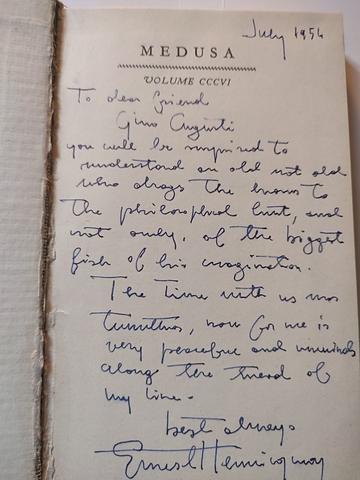 July 1954
MEDUSA
VOLUME CCCVI
To dear friend
Gino Augusti
you will be surprised to
understand an old not old
who drags the to
the philosophal hunt, and
not only, of the biggest
fish of his imagination.
The Time with us was
now for me is
very peaceful and unwinds
along the thread of
my line.
best always
Ernest Hemingway